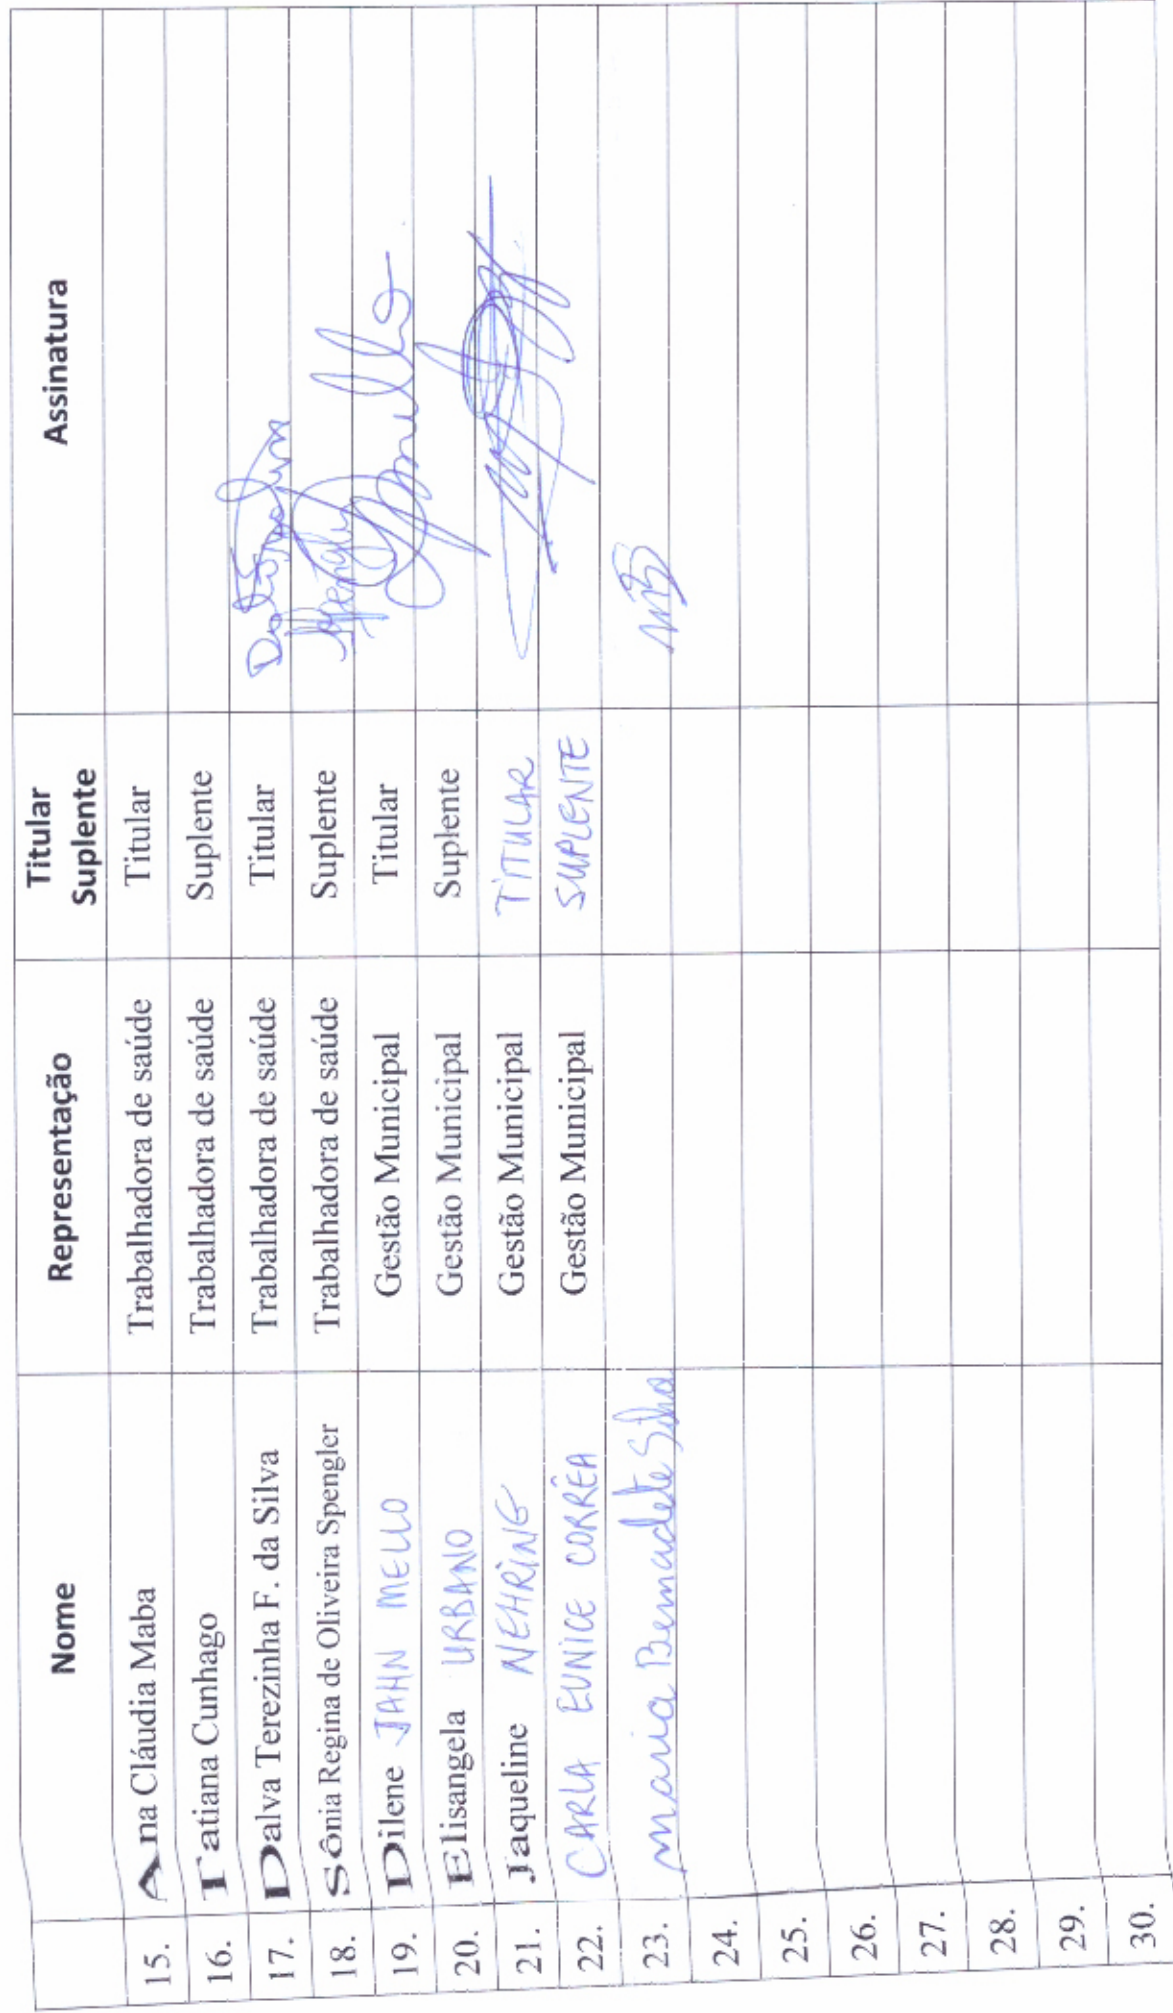 Nome Representação Titular Suplente Assinatura
15. Ana Cláudia Maba Trabalhadora de saúde Titular
16. Tatiana Cunhago Trabalhadora de saúde Suplente
17. Dalva Terezinha F. da Silva Trabalhadora de saúde Titular
18. Sônia Regina de Oliveira Spengler Trabalhadora de saúde Suplente
19. Dilene JAHN MELLO Gestão Municipal Titular
20. Elisangela URBANO Gestão Municipal Suplente
21. Jaqueline NEHRING Gestão Municipal TITULAR
22. CARLA EUNICE CORRÊA Gestão Municipal SUPLENTE
23. maria Bernadete Silva
24.
25.
26.
27.
28.
29.
30.